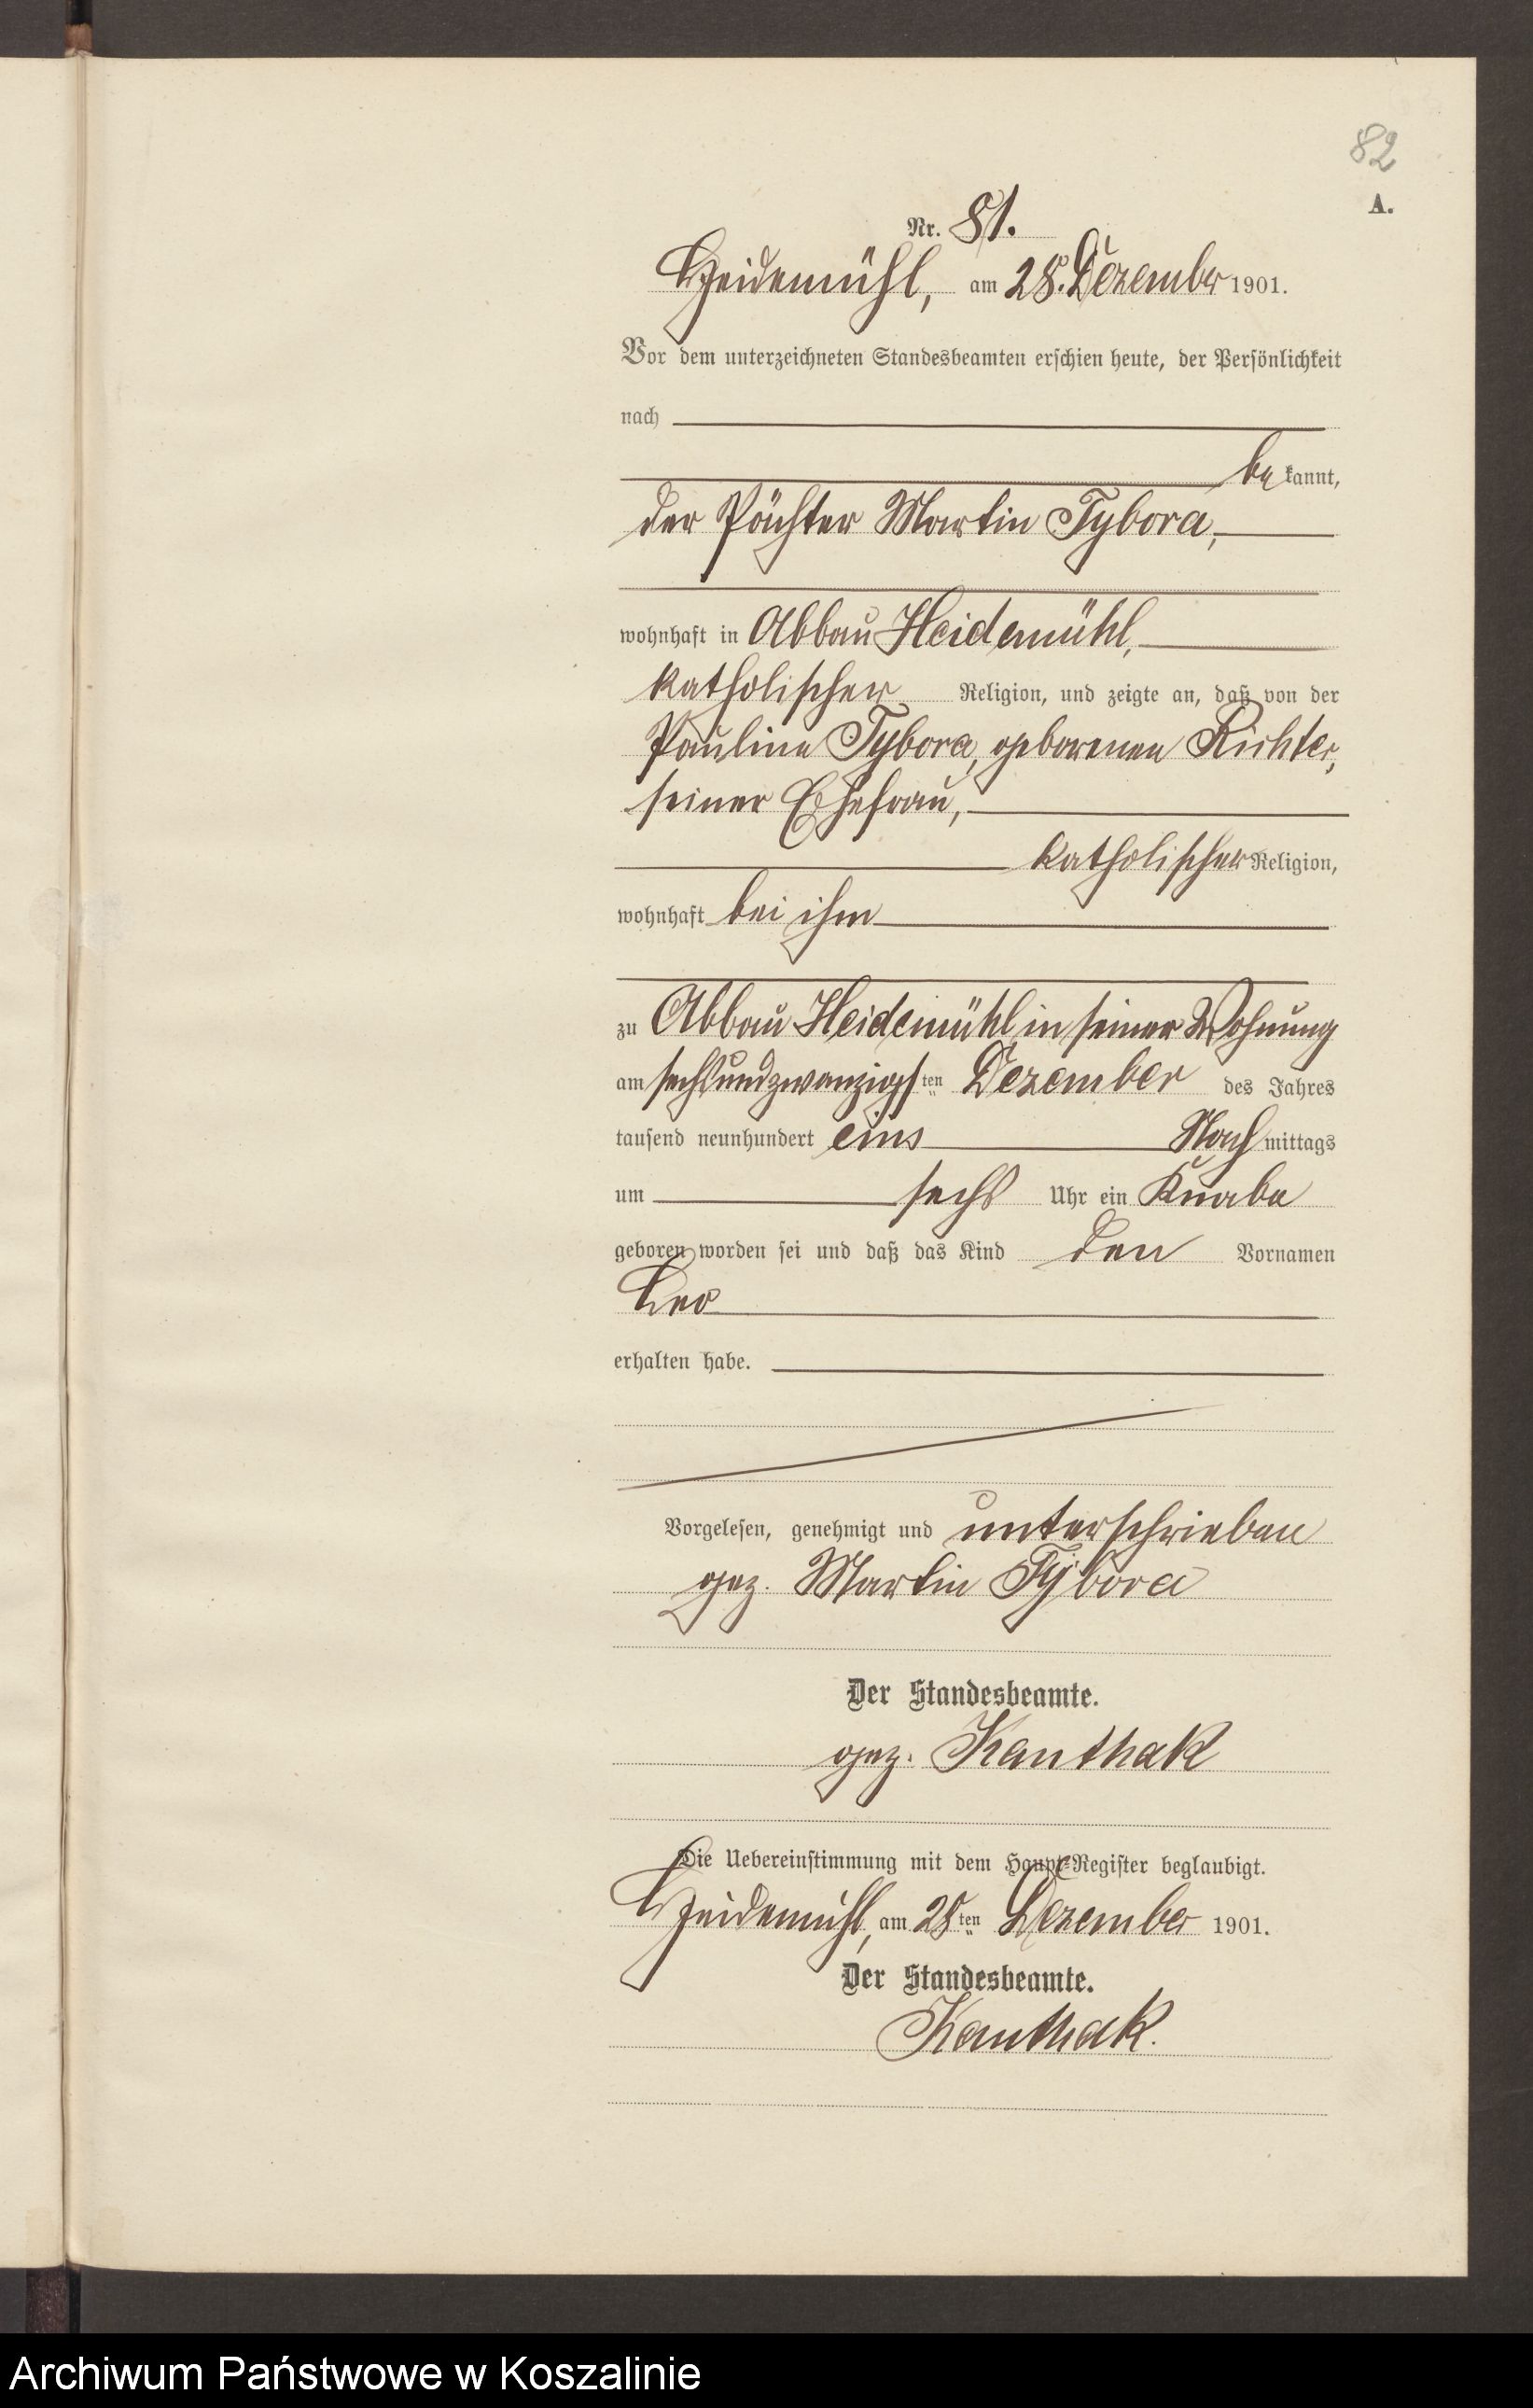 82
A.
Nr. 81.
Heidemühl, am 28. Dezember 1901.
Vor dem unterzeichneten Standesbeamten erschien heute, der Persönlichkeit
nach
be kannt,
der Pächter Martin Tybora,
wohnhaft in Abbau Heidemühl,
katholischer Religion, und zeigte an, daß von der
Pauline Tybora, geborenen Richter,
seiner Ehefrau,
katholischer Religion,
wohnhaft bei ihm
zu Abbau Heidemühl in seiner Wohnung
am sechsundzwanzigsten Dezember des Jahres
tausend neunhundert eins Nach mittags
um sechs Uhr ein Knabe
geboren worden sei und daß das Kind den Vornamen
Leo
erhalten habe.
Vorgelesen, genehmigt und unterschrieben
gez. Martin Tybora
Der Standesbeamte.
gez. Kanthak
Die Uebereinstimmung mit dem Haupt-Register beglaubigt.
Heidemühl, am 28ten Dezember 1901.
Der Standesbeamte.
Kanthak.
Archiwum Państwowe w Koszalinie